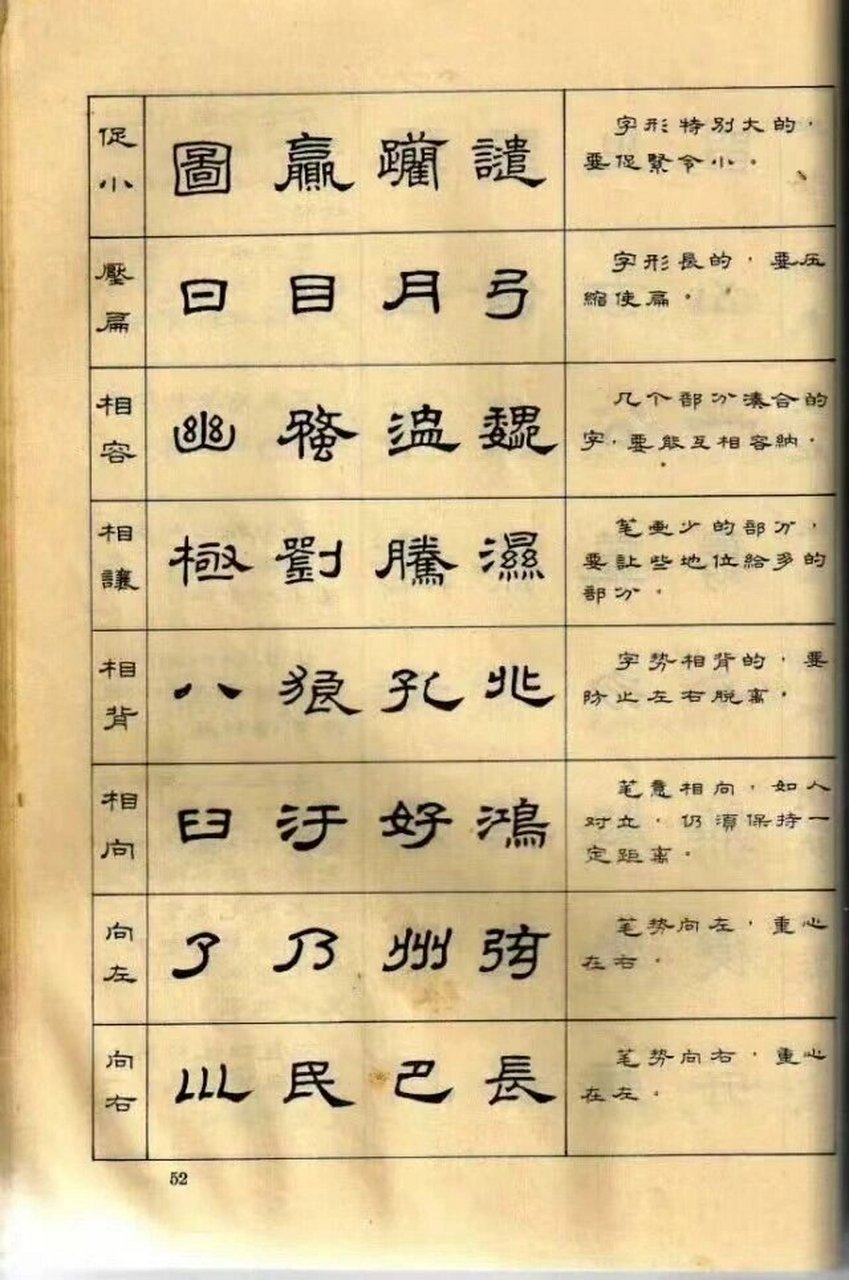 促小
圖 譴
字形特别大的，
要促緊令小。
壓扁
日 目 月 弓
字形長的，要压
縮使扁。
相容
幽 溫 魏
几个部分凑合的
字，要能互相容納。
相讓
極 劉 騰 濕
笔画少的部分，
要让些地位給多的
部分。
相背
八 狼 孔 兆
字势相背的，要
防止左右脫离。
相向
臼 汙 好 鴻
笔意相向，如人
对立，仍須保持一
定距离。
向左
了 乃 州
笔势向左，重心
在右。
向右
民 巴 長
笔势向右，重心
在左。
52